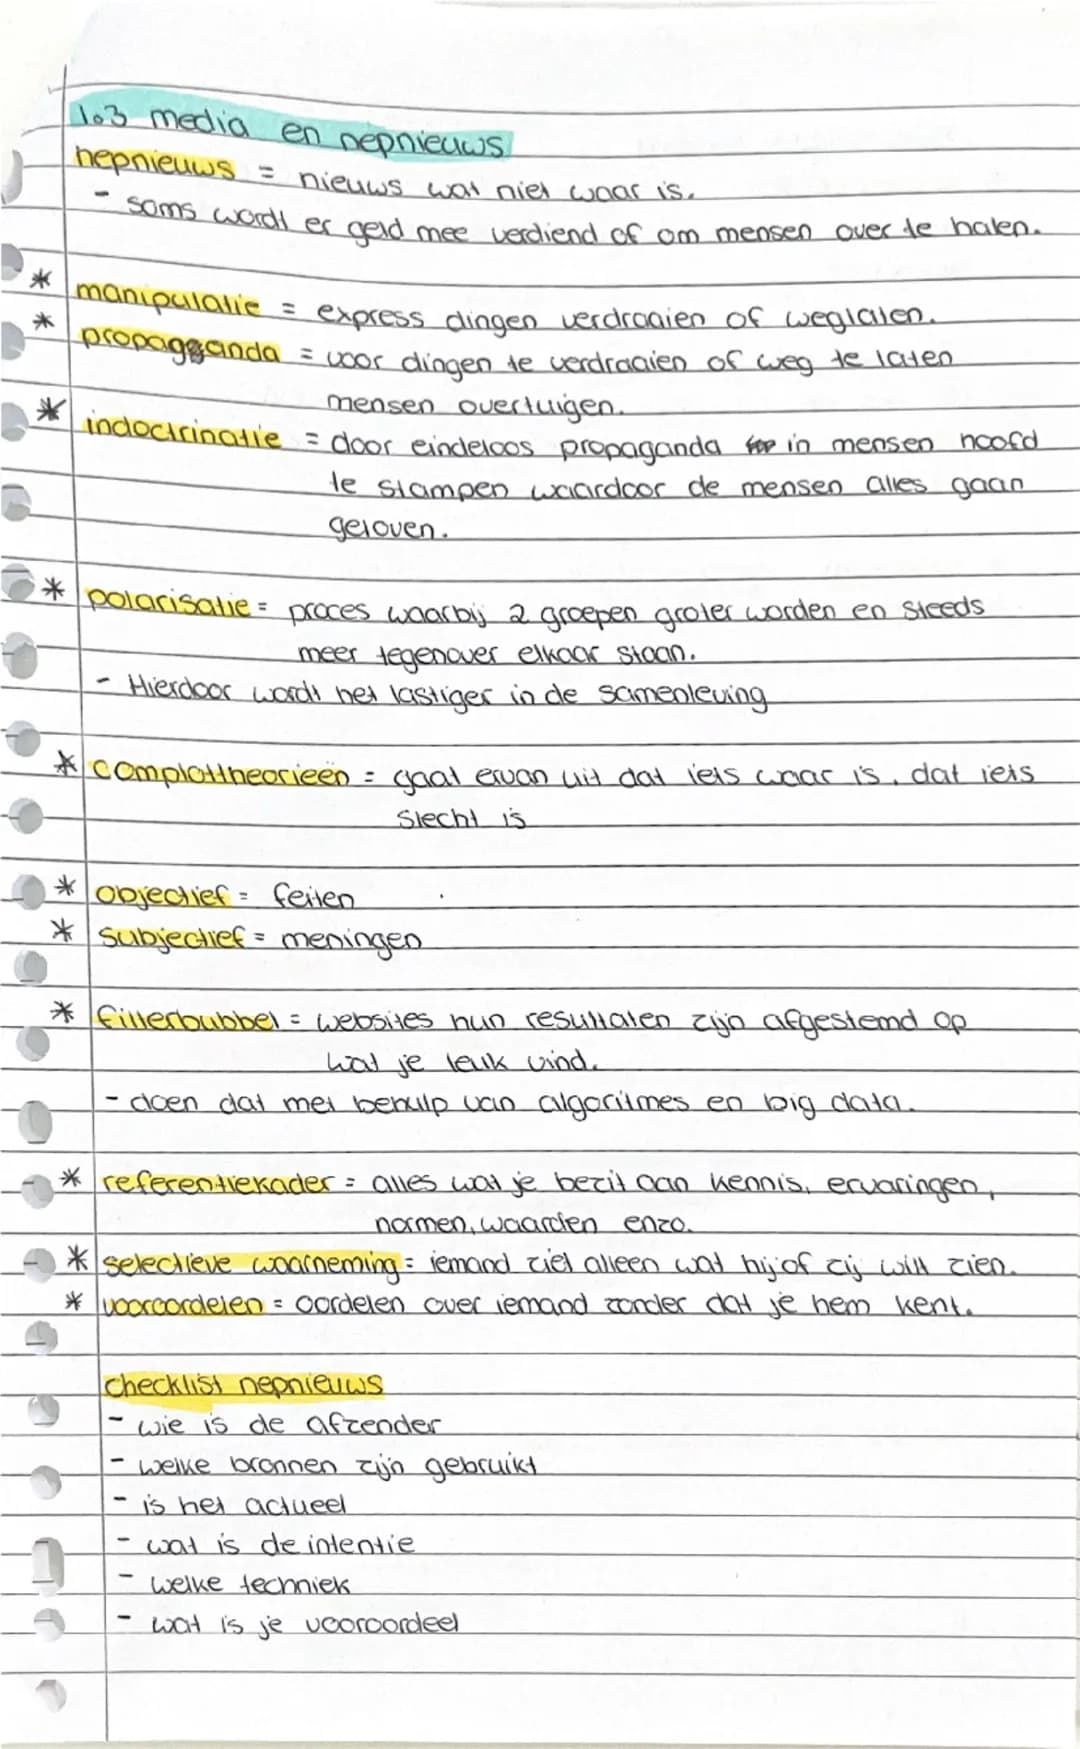 1.3 media en nepnieuws
nepnieuws = nieuws wat niet waar is.
- soms wordt er geld mee verdiend of om mensen over te halen.
* manipulatie = express dingen verdraaien of weglaten.
* propagganda = voor dingen te verdraaien of weg te laten
mensen overtuigen.
* indoctrinatie = door eindeloos propaganda in mensen hoofd
te stampen waardoor de mensen alles gaan
geloven.
* polarisatie = proces waarbij 2 groepen groter worden en steeds
meer tegenover elkaar staan.
- Hierdoor wordt het lastiger in de samenleving
* complottheorieën = gaat ervan uit dat iets waar is, dat iets
slecht is
* objectief = feiten
* subjectief = meningen
* filterbubbel = websites hun resultaten zijn afgestemd op
wat je leuk vind.
- doen dat met behulp van algoritmes en big data.
* referentiekader = alles wat je bezit aan kennis, ervaringen,
normen, waarden enzo.
* selectieve waarneming = iemand ziet alleen wat hij of zij will zien.
* vooroordelen = oordelen over iemand zonder dat je hem kent.
checklist nepnieuws
- wie is de afzender
- welke bronnen zijn gebruikt
- is het actueel
- wat is de intentie
- welke techniek
- wat is je vooroordeel